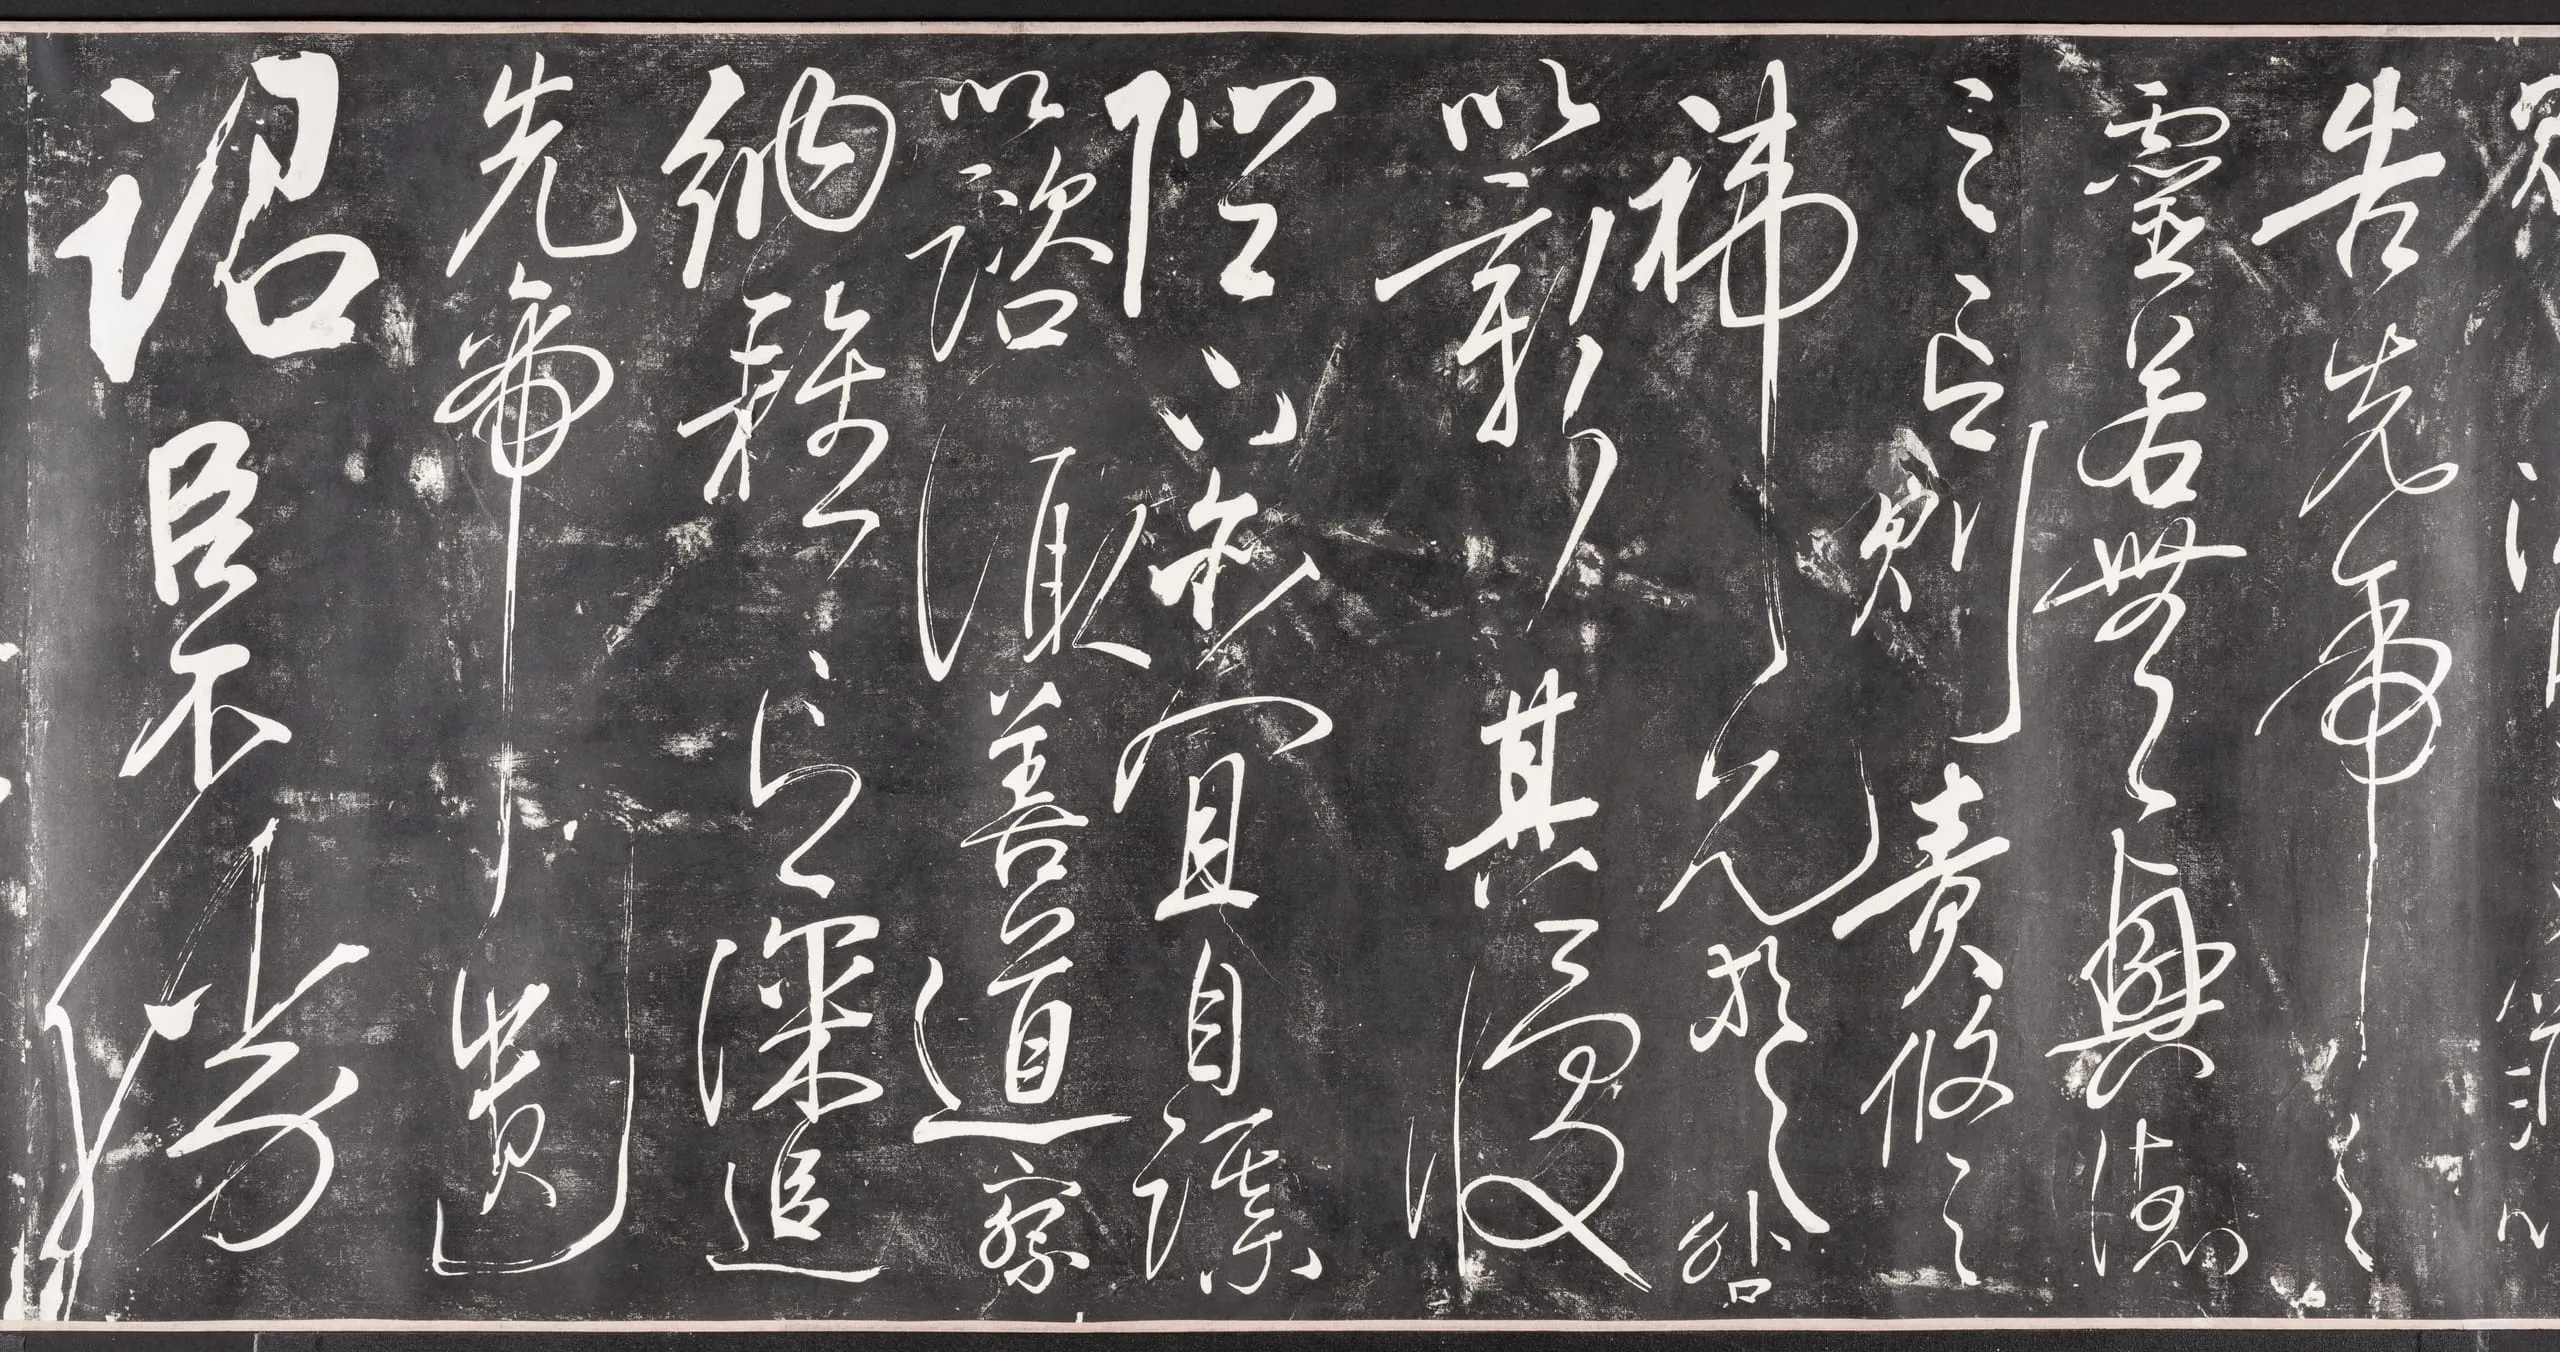 告先帝之
靈若無興德
之言則責攸之
禕允等咎
以彰其慢
陛下亦宜自謀
以諮諏善道察
納雅言深追
先帝遺
詔臣不勝